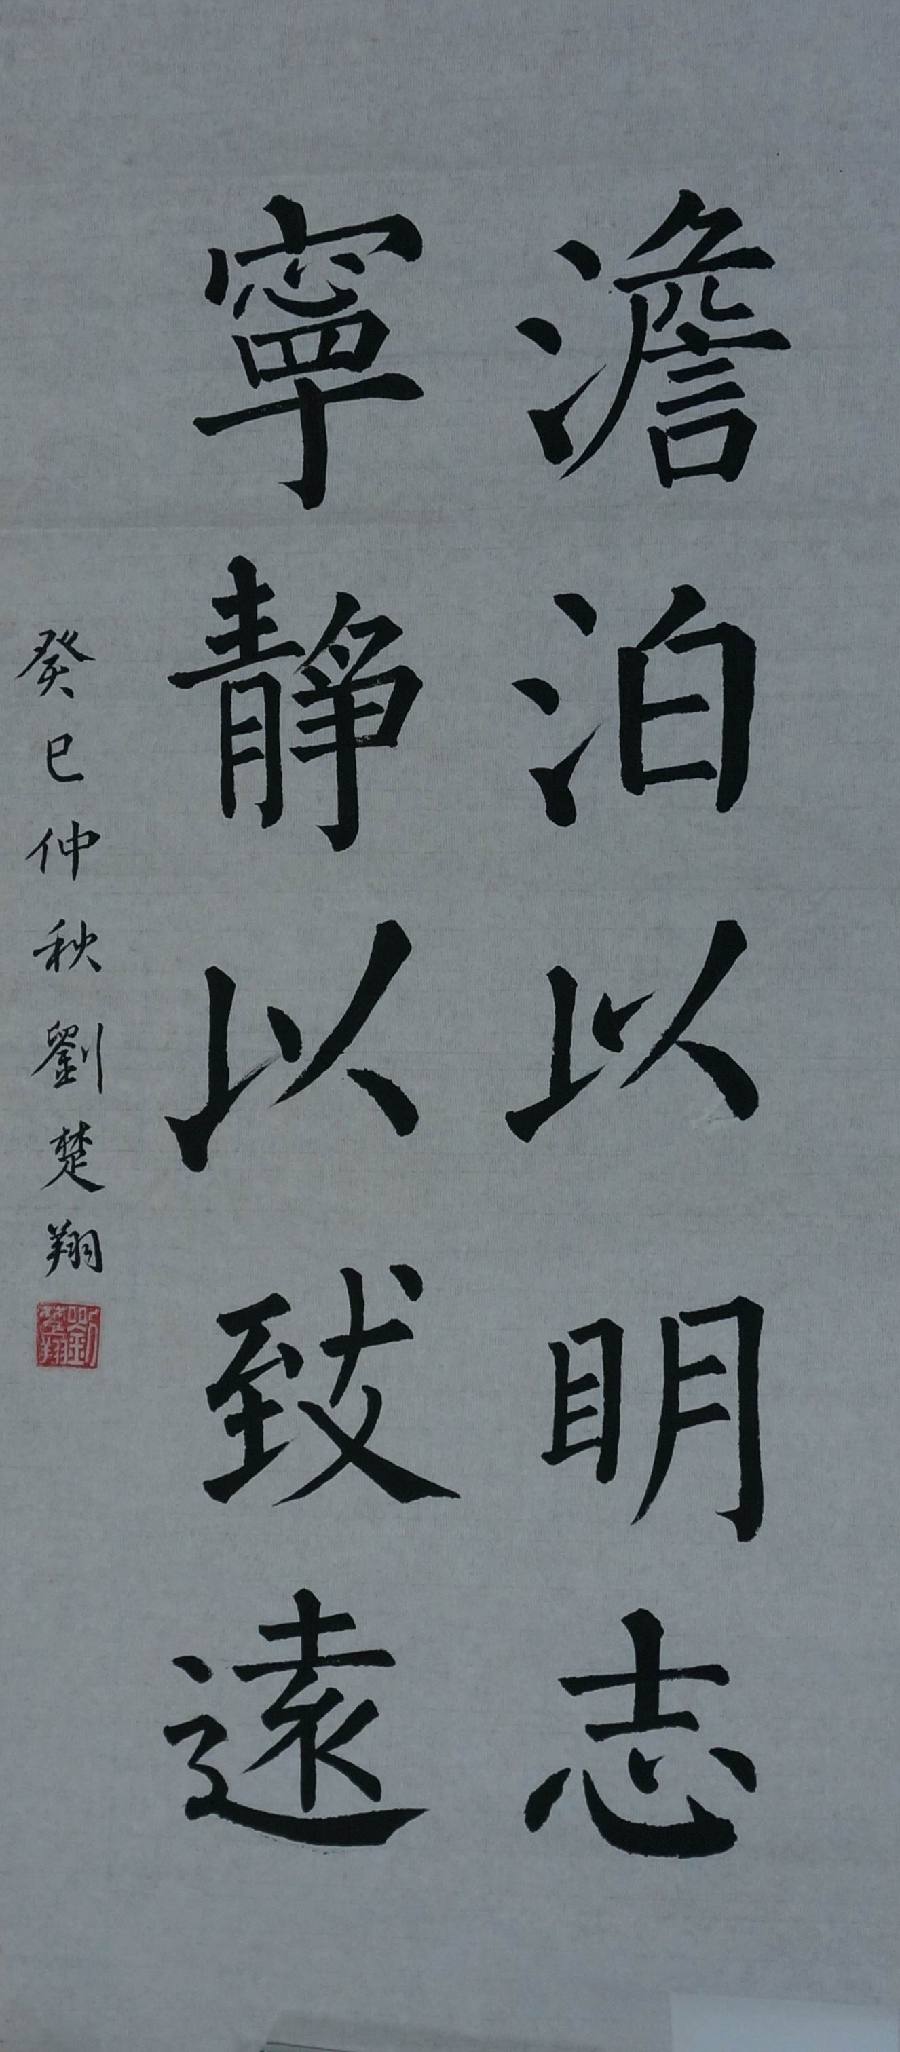 澹泊以明志
寧靜以致遠
癸巳仲秋劉楚翔
劉楚翔